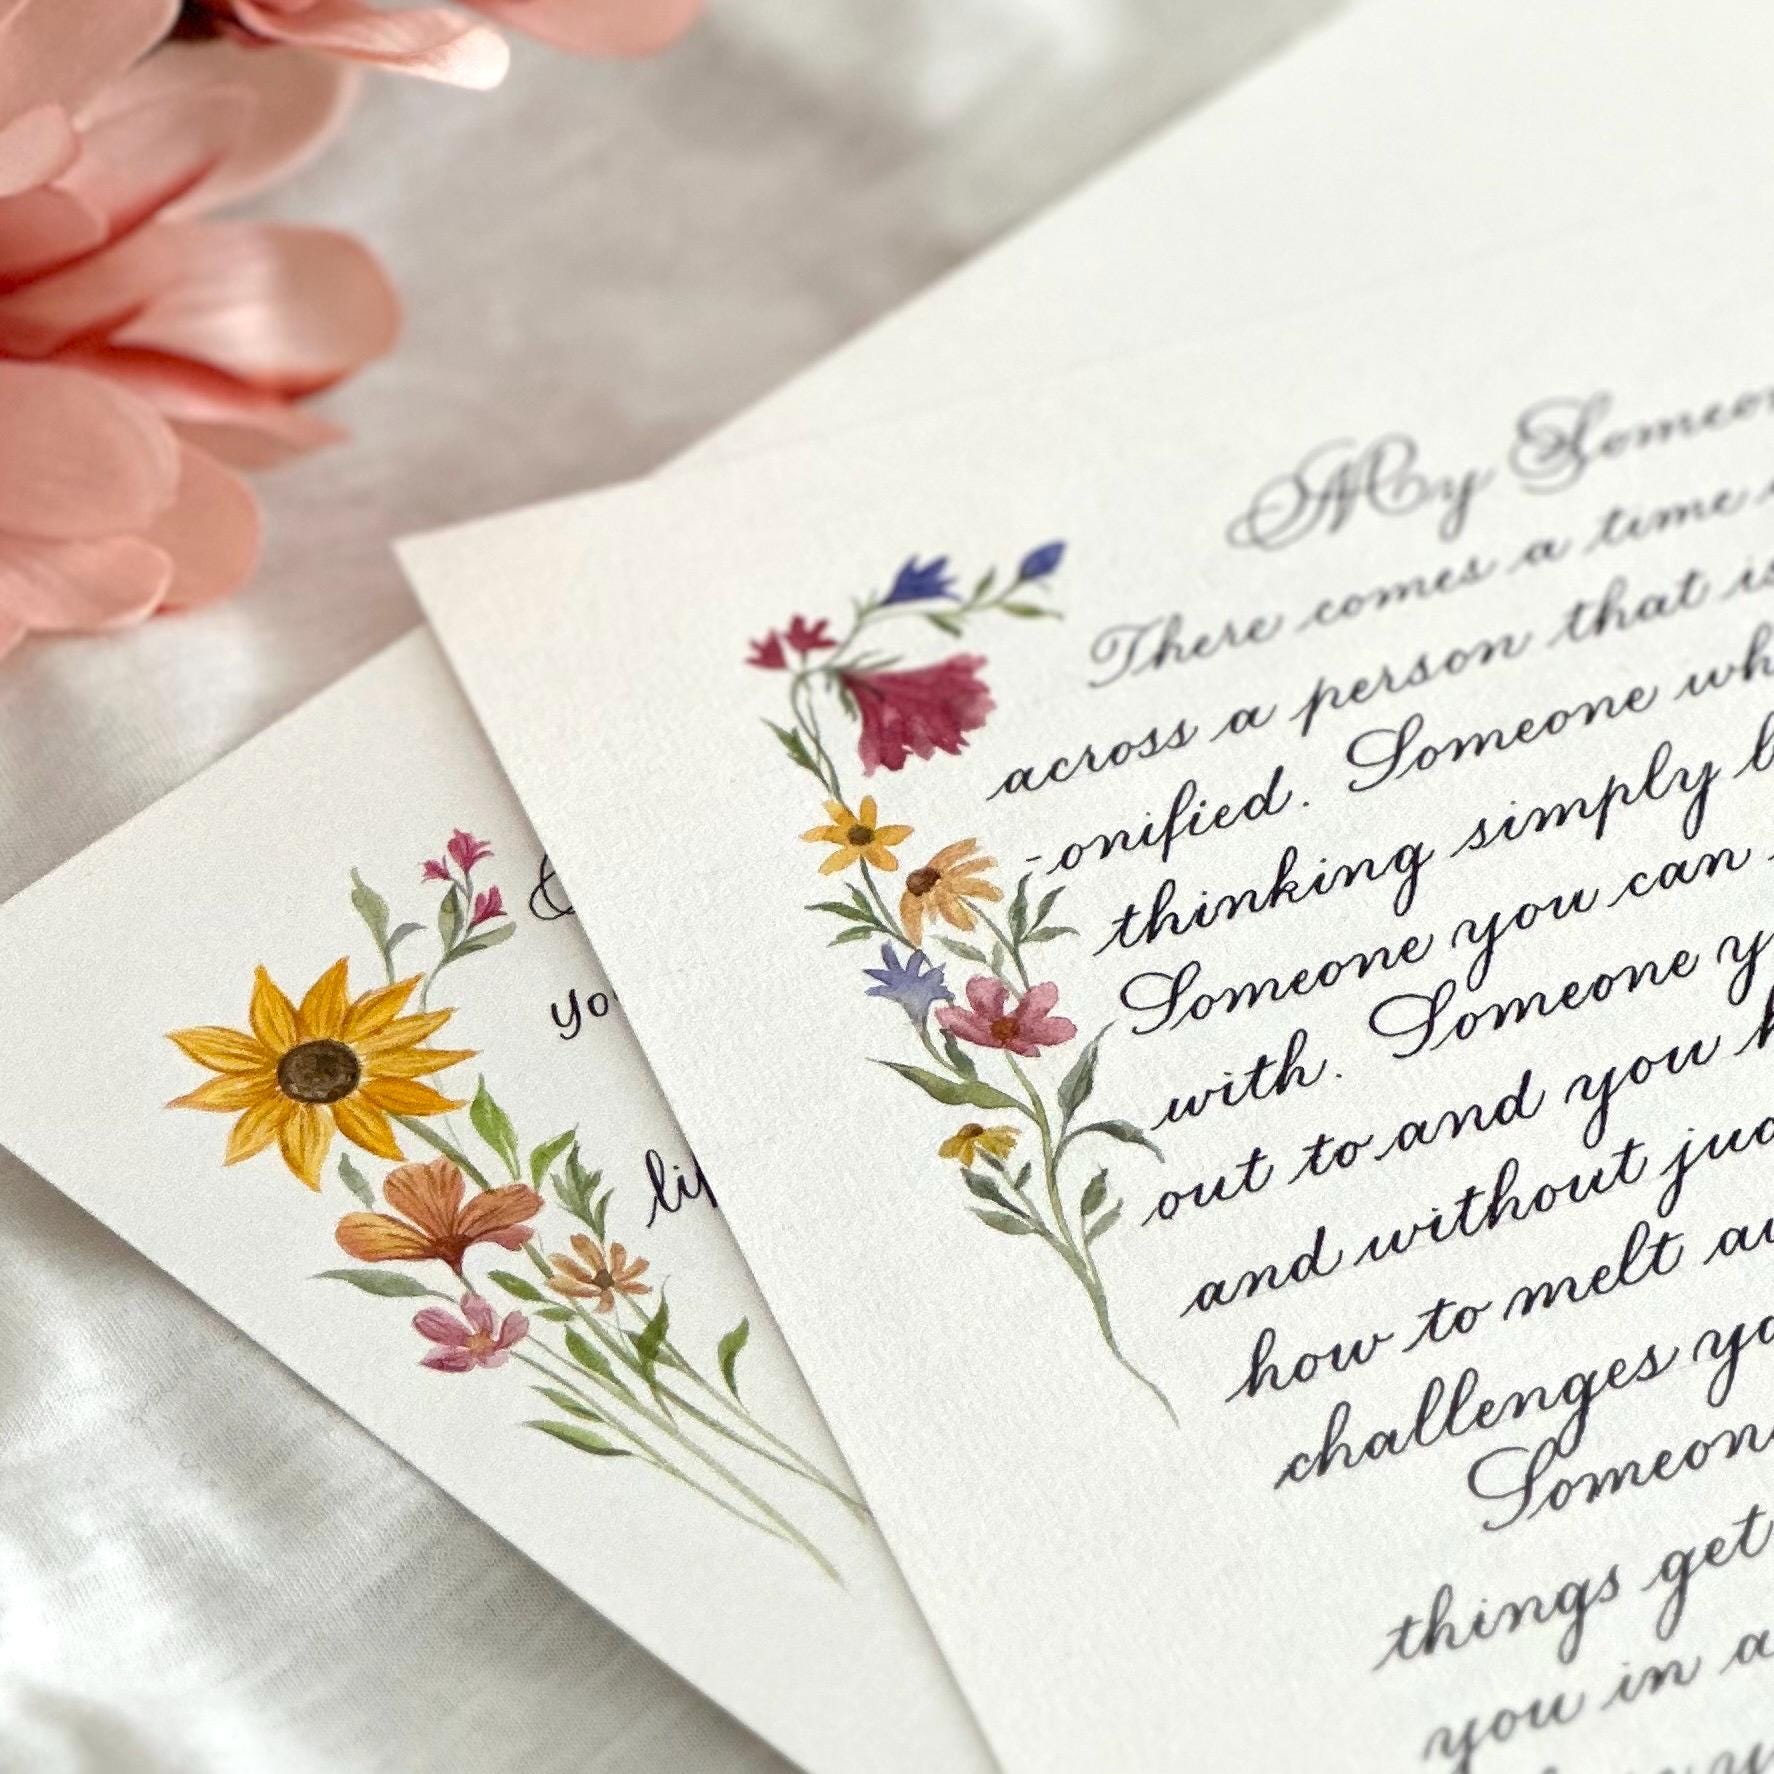 My
There comes a time
across a person that
-onified. Someone
thinking simply
Someone you can
with. Someone
out to and you
and without
how to melt
challenges
things get
you in a